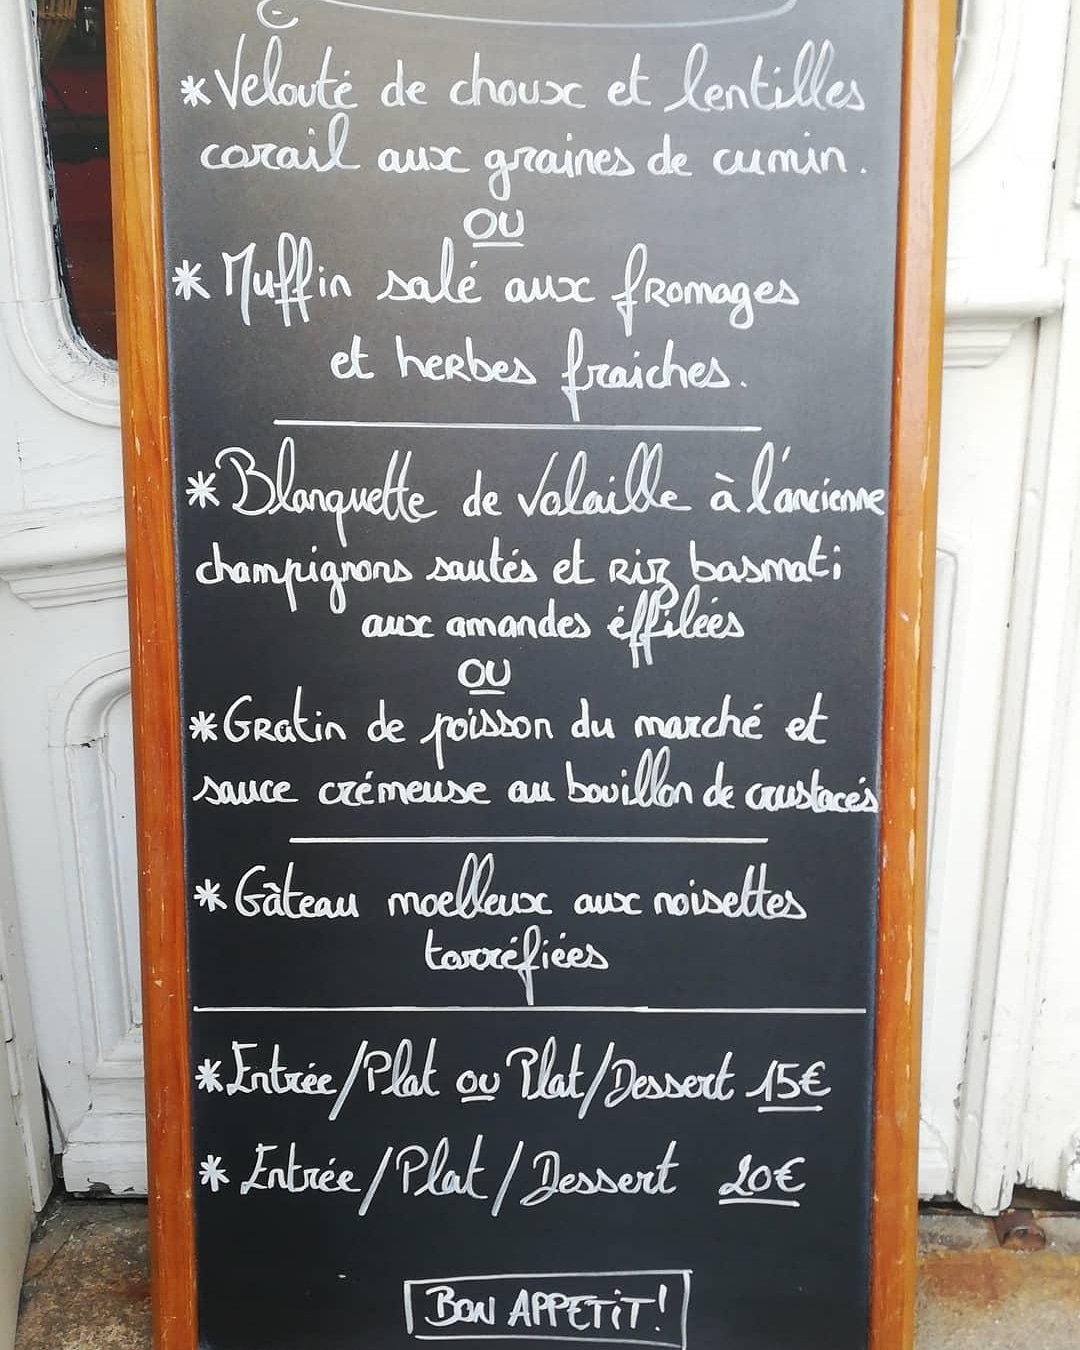 * Velouté de choux et lentilles
corail aux graines de cumin.
OU
* Muffin salé aux fromages
et herbes fraiches.
* Blanquette de Volaille à l'ancienne
champignons sautés et riz basmati
aux amandes éffilées
OU
* Gratin de poisson du marché et
sauce crémeuse au bouillon de crustacés
* Gâteau moelleux aux noisettes
torréfiées
* Entrée/Plat ou Plat/Dessert 15€
* Entrée/Plat/Dessert 20€
BON APPETiT!